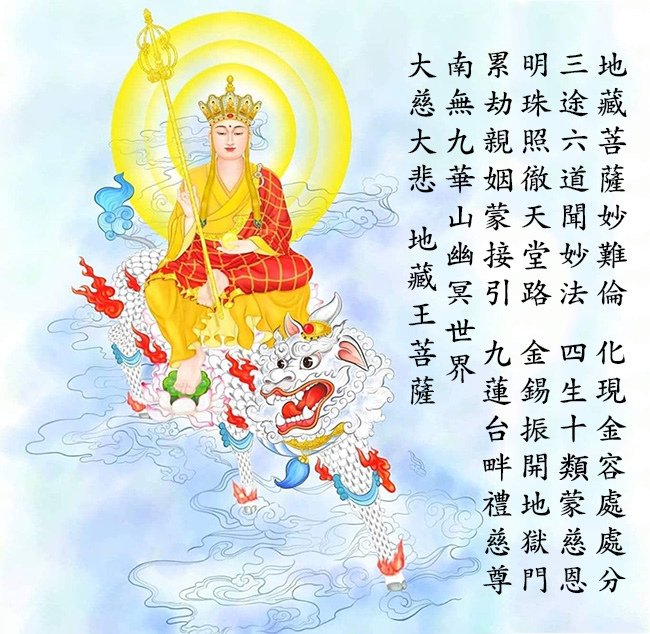 地藏菩薩妙難倫　化現金容處處分
三途六道聞妙法　四生十類蒙慈恩
明珠照徹天堂路　金錫振開地獄門
累劫親姻蒙接引　九蓮台畔禮慈尊
南無九華山幽冥世界
大慈大悲　地藏王菩薩